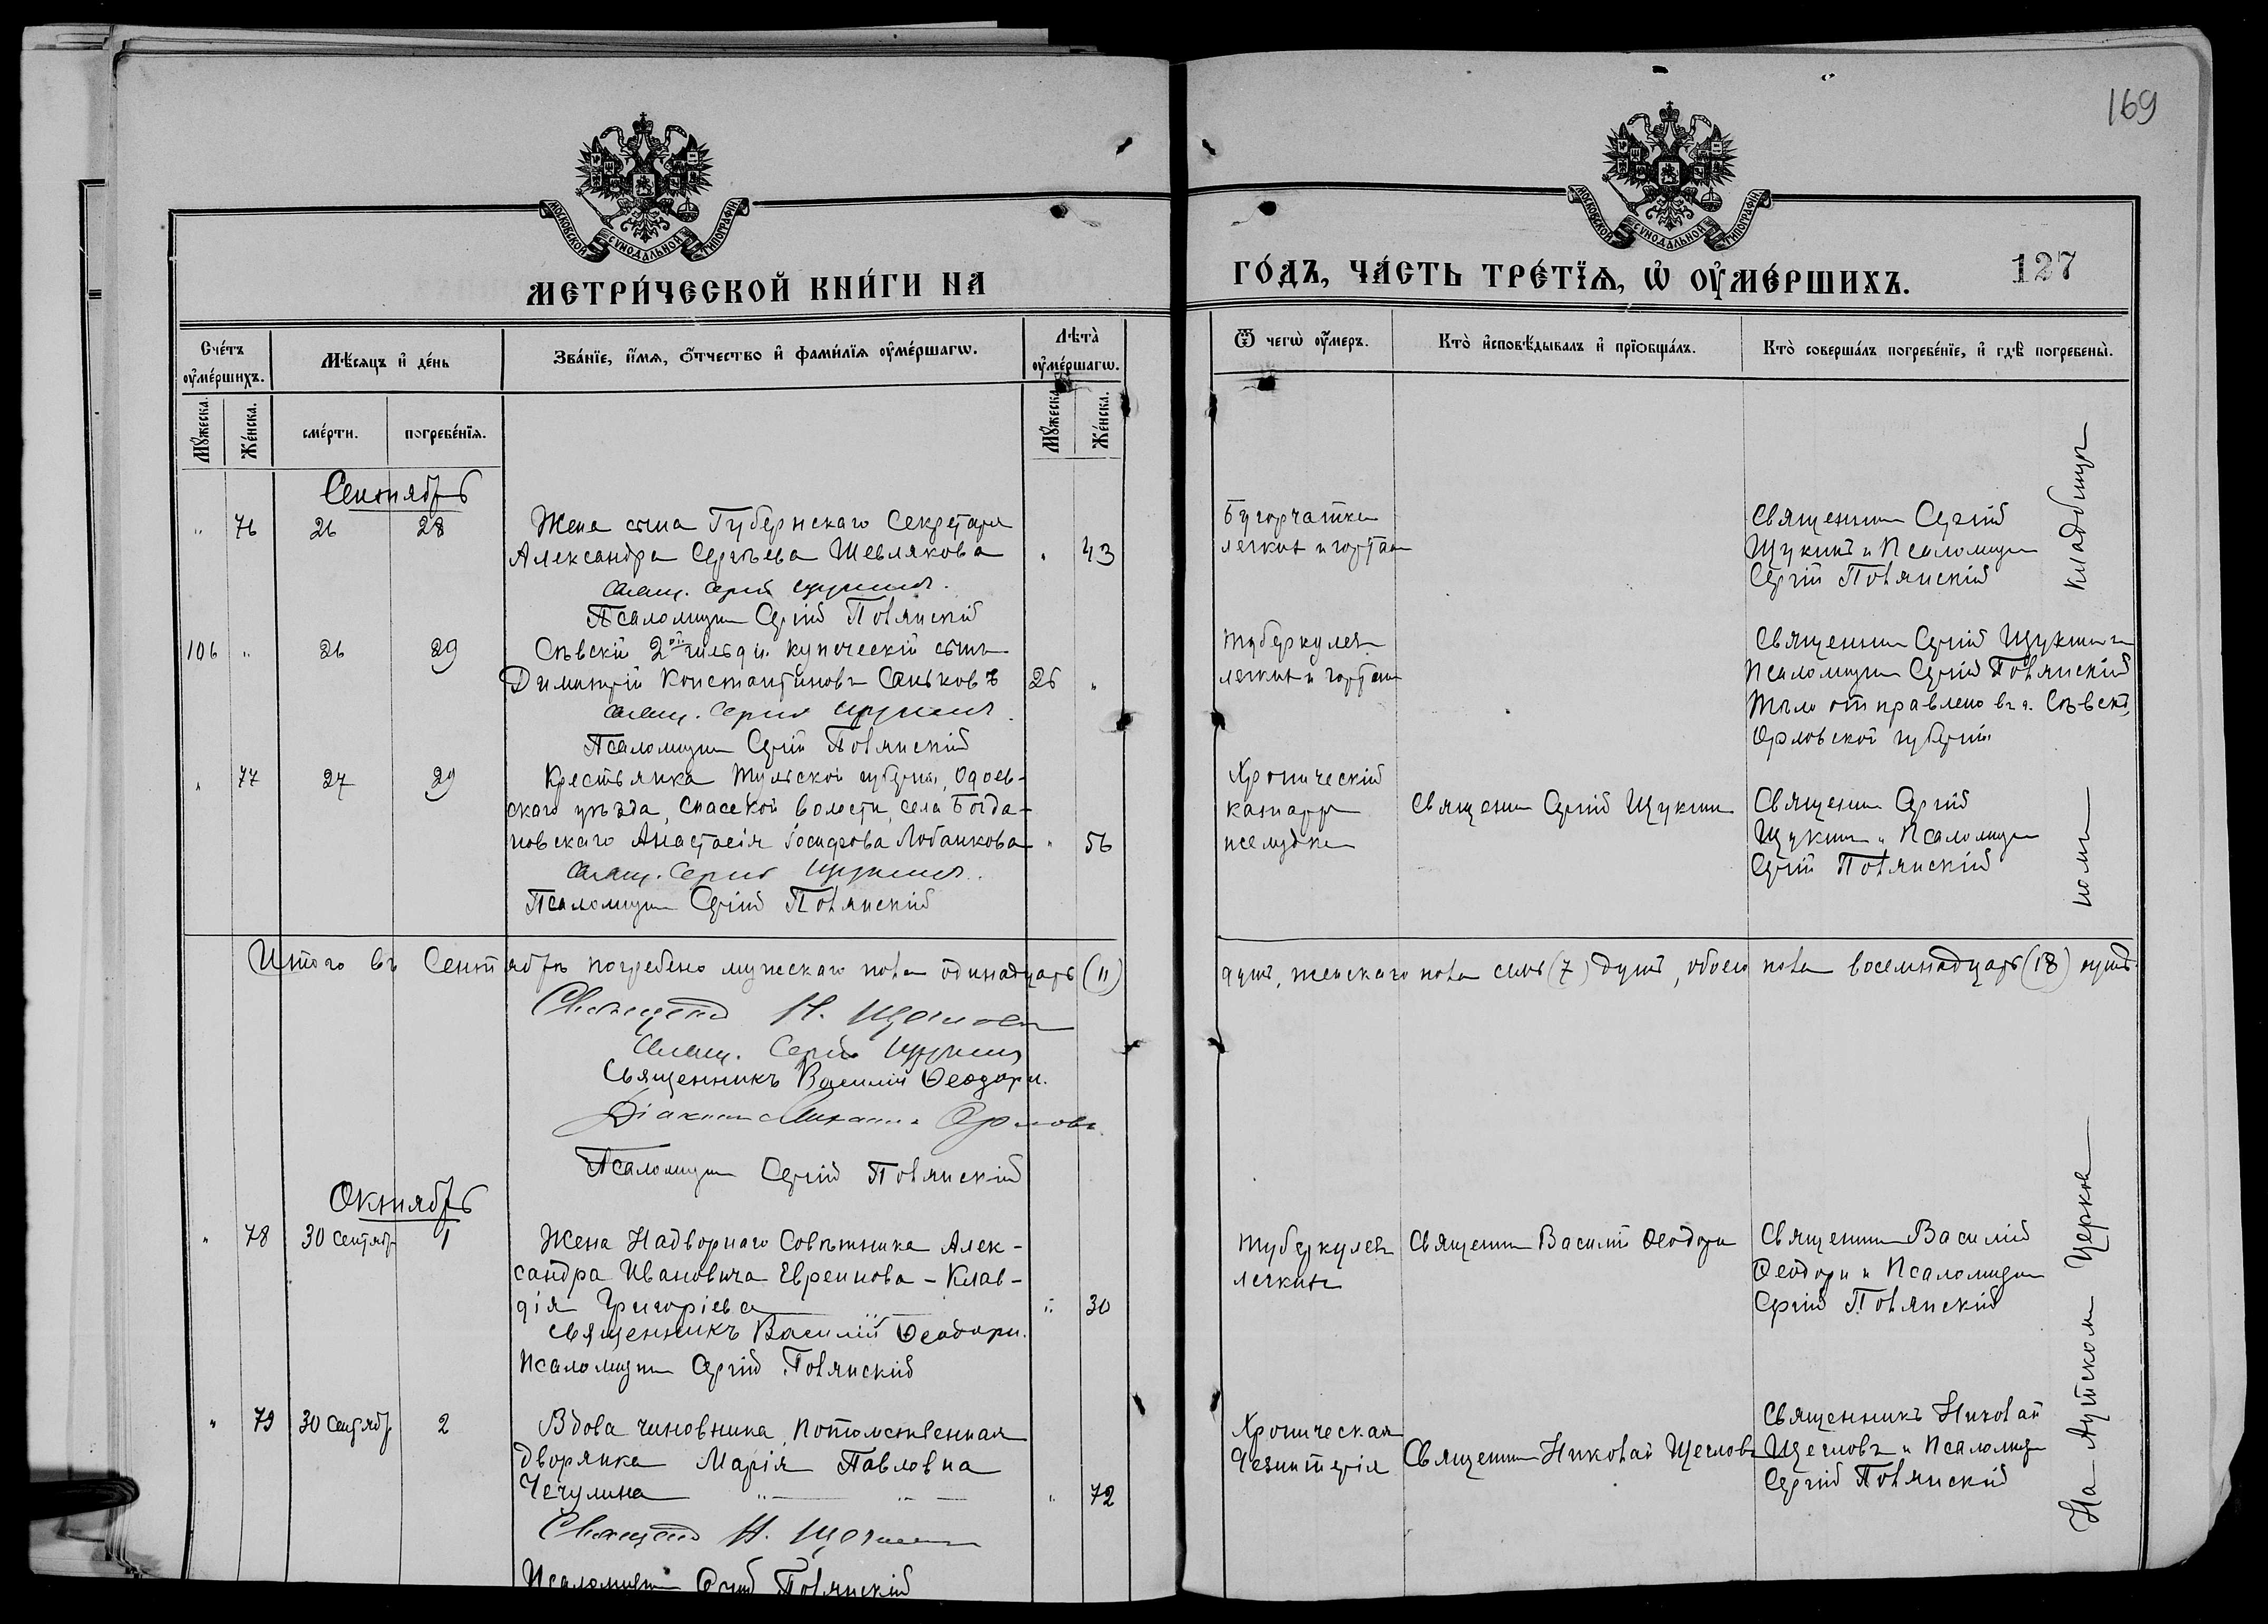 169
МОСКОВСКОЙ СѴНОДАЛЬНОЙ ТИПОГРАФІИ
МОСКОВСКОЙ СѴНОДАЛЬНОЙ ТИПОГРАФІИ
МЕТРИ́ЧЕСКОЙ КНИ́ГИ НА
ГО́ДЪ, ЧА́СТЬ ТРЕ́ТЇѦ, Ѡ҆ ОУ҆МЕ́РШИХЪ.
127
Сче́тъ оу҆ме́ршихъ.
Мѣ́сяцъ и҆ де́нь
Зва́нїе, и҆́мѧ, ѻ҆́тчество и҆ фами́лїѧ оу҆ме́ршагѡ.
Лѣта̀ оу҆ме́ршагѡ.
Ѿ чегѡ̀ оу҆́меръ.
Кто̀ и҆сповѣ́дывалъ и҆ прїѻбща́лъ.
Кто̀ соверша́лъ погребе́нїе, и҆ гдѣ̀ погребены̀.
Мꙋ́жеска.
Же́нска.
сме́рти.
погребе́нїѧ.
Мꙋ́жеска.
Же́нска.
Сентябрь
" 76 26 28
Жена сына Губернскаго Секретаря
Александра Сергѣева Шевлякова " 43
Свящ. Сергій Щукинъ.
Псаломщикъ Сергій Полянскій
Бугорчатка
легкихъ и гортани
Священникъ Сергій
Щукинъ и Псаломщикъ
Сергій Полянскій
кладбищѣ
106 " 26 29
Сѣвскій 2ой гильдіи купеческій сынъ
Димитрій Константиновъ Саньковъ 26 "
Свящ. Сергій Щукинъ.
Псаломщикъ Сергій Полянскій
Туберкулезъ
легкихъ и гортани
Священникъ Сергій Щукинъ и
Псаломщикъ Сергій Полянскій
Тѣло отправлено въ г. Сѣвскъ,
Орловской губерніи
" 77 27 29
Крестьянка Тульской губерніи, Одоев-
скаго уѣзда, Спасской волости, села Богда-
новскаго Анастасія Іосифова Лобанкова " 56
Свящ. Сергій Щукинъ.
Псаломщикъ Сергій Полянскій
Хроническій
катарръ
желудка
Священникъ Сергій Щукинъ
Священникъ Сергій
Щукинъ и Псаломщикъ
Сергій Полянскій
номъ
Итого въ Сентябрѣ погребено мужскаго пола одинадцать (11)
душъ, женскаго пола семь (7) душъ, обоего пола восемнадцать (18) душъ.
Священникъ Н. Щегловъ
Свящ. Сергій Щукинъ
Священникъ Василій Ѳеодори.
Діаконъ Михаилъ Орловъ.
Псаломщикъ Сергій Полянскій
Октябрь
" 78 30 сентябр 1
Жена Надворнаго Совѣтника Алек-
сандра Ивановича Евреинова - Клав-
дія Григоріева " 30
Священникъ Василій Ѳеодори.
Псаломщикъ Сергій Полянскій
Туберкулезъ
легкихъ
Священникъ Василій Ѳеодори
Священникъ Василій
Ѳеодори и Псаломщикъ
Сергій Полянскій
" 79 30 сентябр 2
Вдова чиновника, потомственная
дворянка Марія Павловна
Чечулина " 72
Священникъ Н. Щегловъ
Псаломщикъ Сергій Полянскій
Хроническая
дезинтерія
Священникъ Николай Щегловъ
Священникъ Николай
Щегловъ и Псаломщикъ
Сергій Полянскій
На Аутскомъ Церков